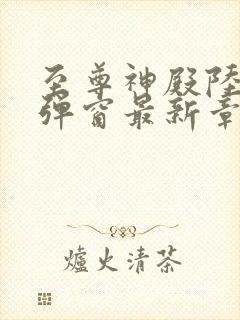 至尊神殿陸
彈窗最新章
爐火清茶